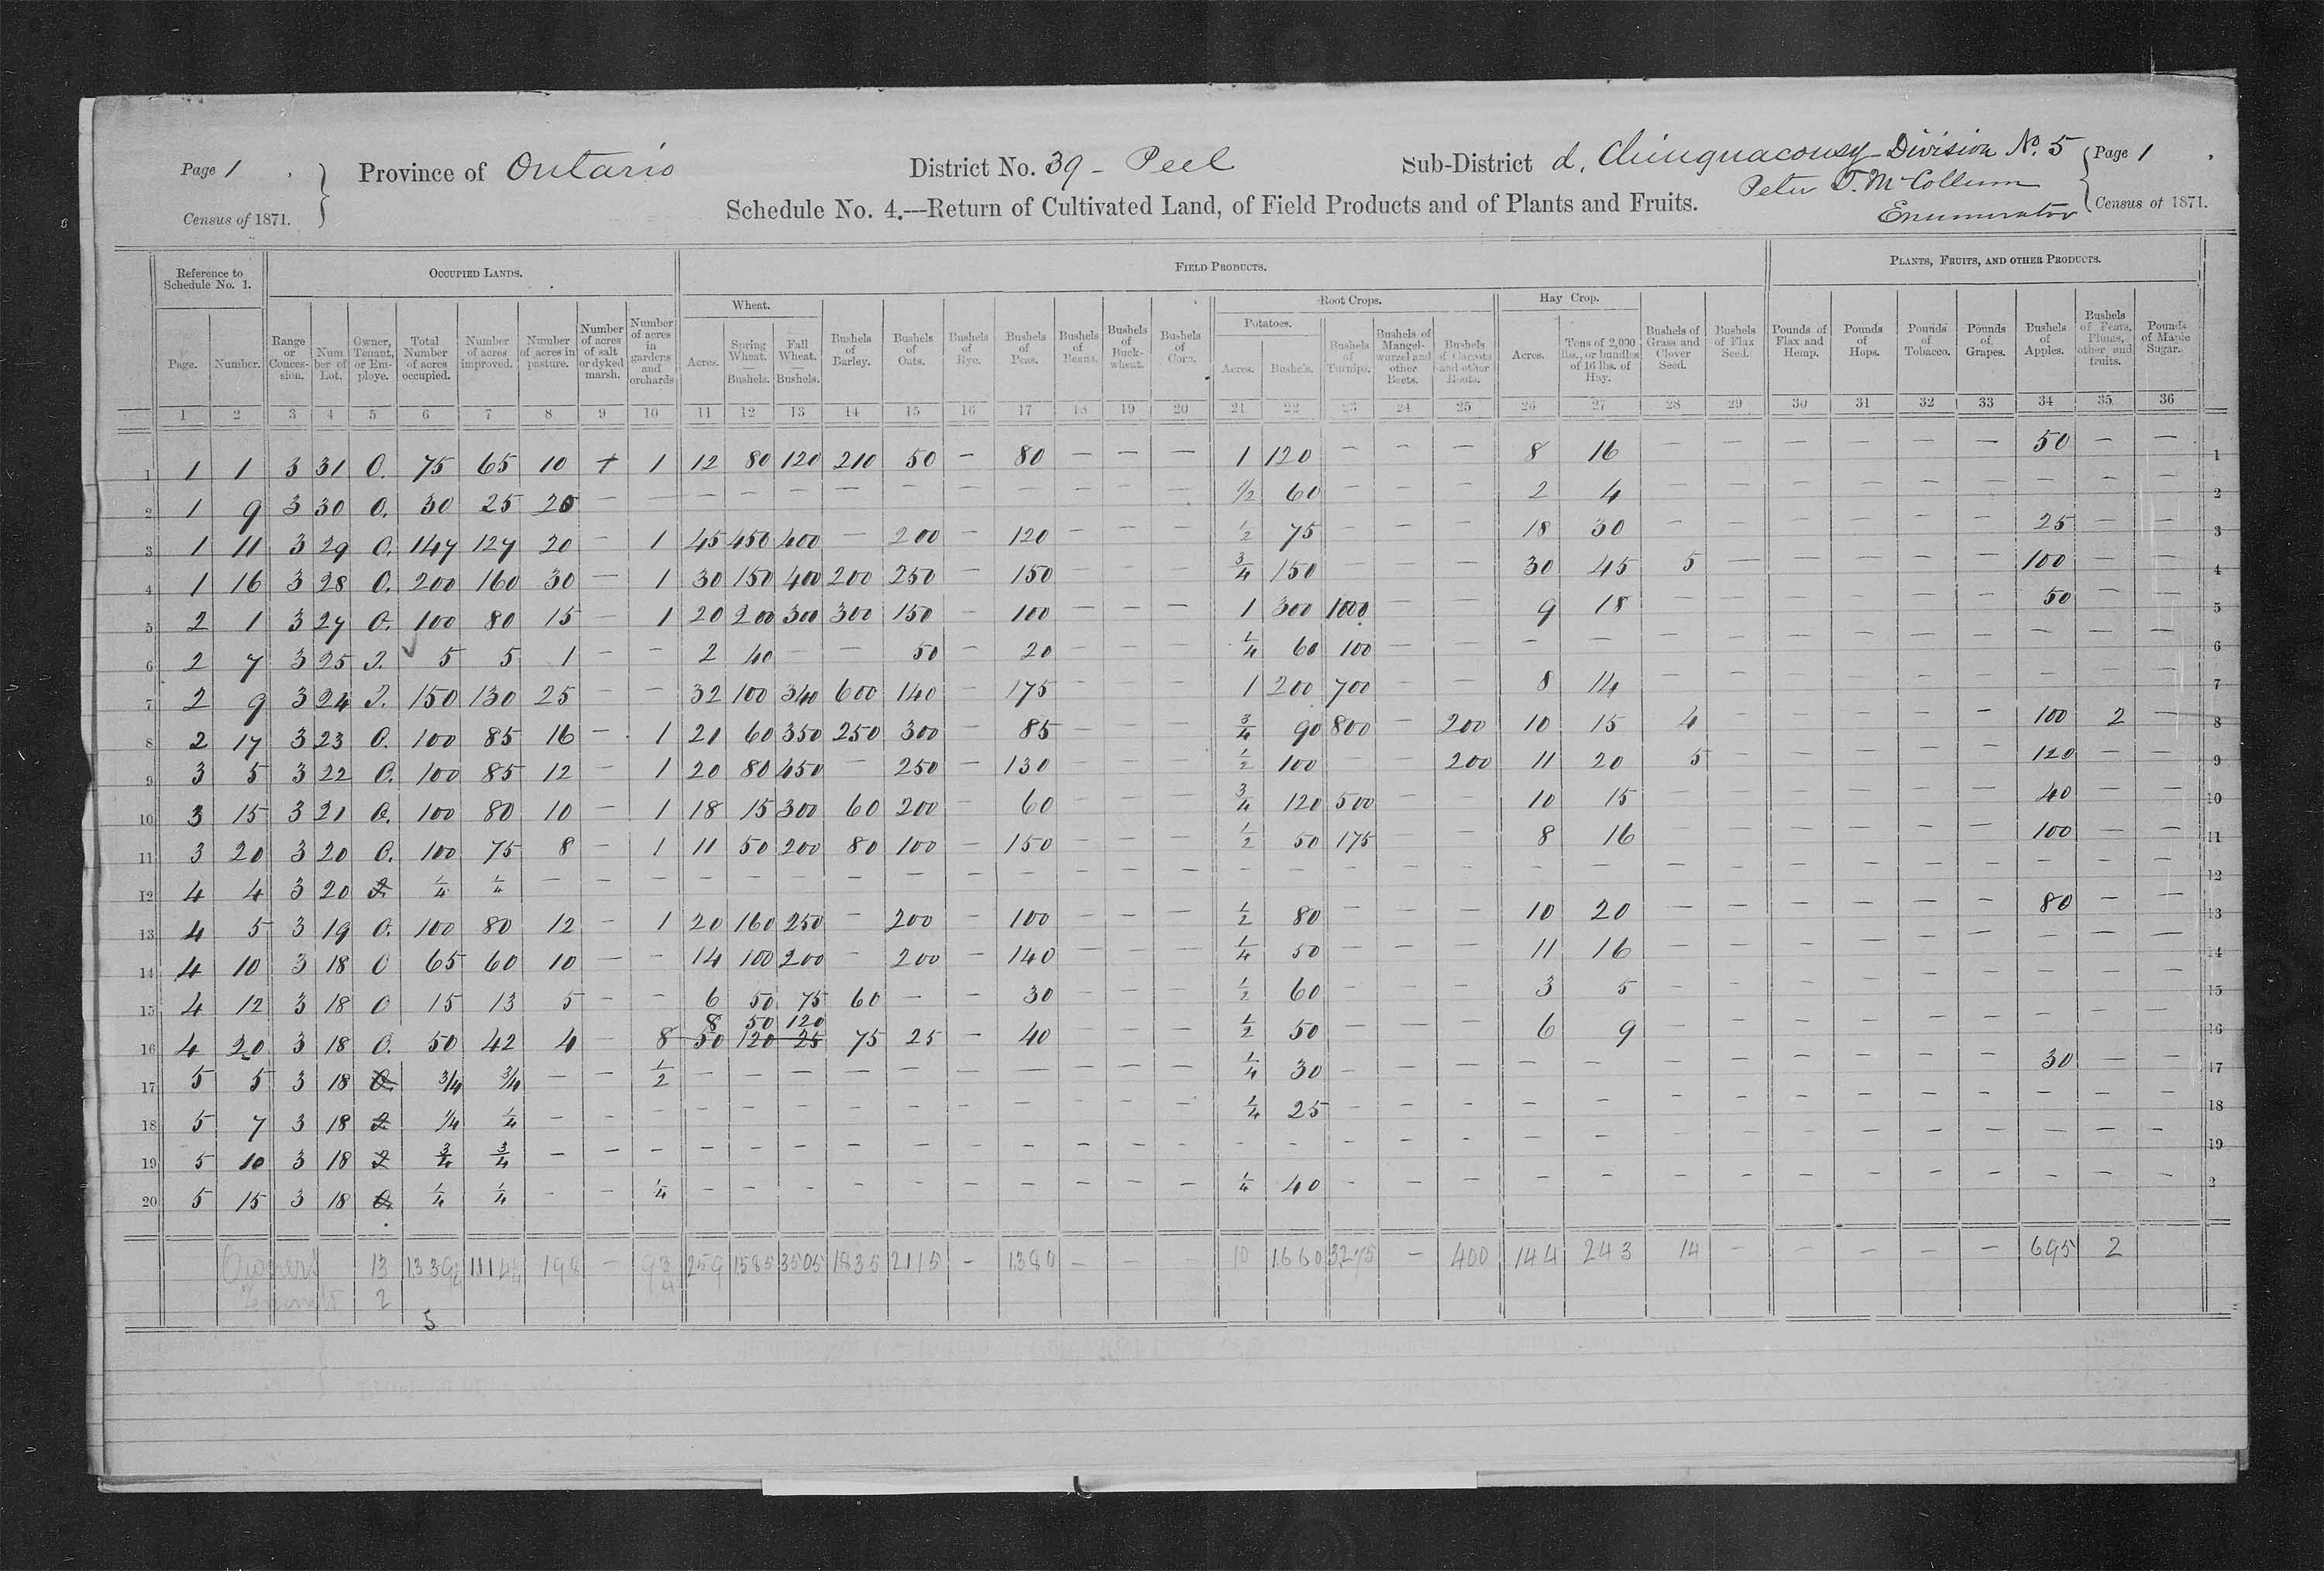 Page 1
Census of 1871.
Province of Ontario
District No. 39 - Peel
Sub-District d. Chinguacousy - Division No. 5
Peter T. McCollum
Enumerator
Page 1
Census of 1871.
Schedule No. 4.---Return of Cultivated Land, of Field Products and of Plants and Fruits.
Reference to Schedule No. 1. | OCCUPIED LANDS. | FIELD PRODUCTS. | PLANTS, FRUITS, AND OTHER PRODUCTS.
Wheat. | Root Crops. | Potatoes. | Hay Crop.
Page. | Number. | Range or Concession. | Number of Lot. | Owner, Tenant, or Employe. | Total Number of acres occupied. | Number of acres improved. | Number of acres in pasture. | Number of acres of salt or dyked marsh. | Number of acres in gardens and orchards | Acres. | Spring Wheat. — Bushels. | Fall Wheat. — Bushels. | Bushels of Barley. | Bushels of Oats. | Bushels of Rye. | Bushels of Peas. | Bushels of Beans. | Bushels of Buckwheat. | Bushels of Corn. | Acres. | Bushels. | Bushels of Turnips. | Bushels of Mangel-wurzel and other Beets. | Bushels of Carrots and other Roots. | Acres. | Tons of 2,000 lbs., or bundles of 16 lbs. of Hay. | Bushels of Grass and Clover Seed. | Bushels of Flax Seed. | Pounds of Flax and Hemp. | Pounds of Hops. | Pounds of Tobacco. | Pounds of Grapes. | Bushels of Apples. | Bushels of Pears, Plums, other and fruits. | Pounds of Maple Sugar.
1 2 3 4 5 6 7 8 9 10 11 12 13 14 15 16 17 18 19 20 21 22 23 24 25 26 27 28 29 30 31 32 33 34 35 36
1 1 1 3 31 O. 75 65 10 + 1 12 80 120 210 50 — 80 — — — 1 120 — — — 8 16 — — — — — — 50 — — 1
2 1 9 3 30 O. 30 25 20 — — — — — — — — — — — — 1/2 60 — — — 2 4 — — — — — — — — — 2
3 1 11 3 29 O. 147 127 20 — 1 45 450 400 — 200 — 120 — — — 1/2 75 — — — 18 30 — — — — — — 25 — — 3
4 1 16 3 28 O. 200 160 30 — 1 30 150 400 200 250 — 150 — — — 3/4 150 — — — 30 45 5 — — — — — 100 — — 4
5 2 1 3 27 O. 100 80 15 — 1 20 200 300 300 150 — 100 — — — 1 300 1000 — — 9 18 — — — — — — 50 — — 5
6 2 7 3 25 T. 5 5 1 — — 2 40 — — 50 — 20 — — — 1/4 60 100 — — — — — — — — — — — — — 6
7 2 9 3 24 T. 150 130 25 — — 32 100 340 600 140 — 175 — — — 1 200 700 — — 8 14 — — — — — — — — — 7
8 2 17 3 23 O. 100 85 16 — 1 21 60 350 250 300 — 85 — — — 3/4 90 800 — 200 10 15 4 — — — — — 100 2 — 8
9 3 5 3 22 O. 100 85 12 — 1 20 80 450 — 250 — 130 — — — 1/2 100 — — 200 11 20 5 — — — — — 120 — — 9
10 3 15 3 21 O. 100 80 10 — 1 18 15 300 60 200 — 60 — — — 3/4 120 500 — — 10 15 — — — — — — 40 — — 10
11 3 20 3 20 O. 100 75 8 — 1 11 50 200 80 100 — 150 — — — 1/2 50 175 — — 8 16 — — — — — — 100 — — 11
12 4 4 3 20 T. 1/4 1/4 — — — — — — — — — — — — — — — — — — — — — — — — — — — — — 12
13 4 5 3 19 O. 100 80 12 — 1 20 160 250 — 200 — 100 — — — 1/2 80 — — — 10 20 — — — — — — 80 — — 13
14 4 10 3 18 O 65 60 10 — — 14 100 200 — 200 — 140 — — — 1/4 50 — — — 11 16 — — — — — — — — — 14
15 4 12 3 18 O 15 13 5 — — 6 50 75 60 — — 30 — — — 1/2 60 — — — 3 5 — — — — — — — — — 15
8 50 120
16 4 20 3 18 O. 50 42 4 — 8 50 120 25 75 25 — 40 — — — 1/2 50 — — — 6 9 — — — — — — — — — 16
17 5 5 3 18 O. 3/4 3/4 — — 1/2 — — — — — — — — — — 1/4 30 — — — — — — — — — — — 30 — — 17
18 5 7 3 18 T. 1/4 1/4 — — — — — — — — — — — — — 1/4 25 — — — — — — — — — — — — — — 18
19 5 10 3 18 T 3/4 3/4 — — — — — — — — — — — — — — — — — — — — — — — — — — — — — 19
20 5 15 3 18 O. 1/4 1/4 — — 1/4 — — — — — — — — — — 1/4 40 — — — — — — — — — — — — — — 2
Owners 13 198 — 9 3/4 259 1585 3505 1835 2115 — 1380 — — 10 1660 3275 — 400 144 243 14 — — — — — 695 2
Tenants 2
5